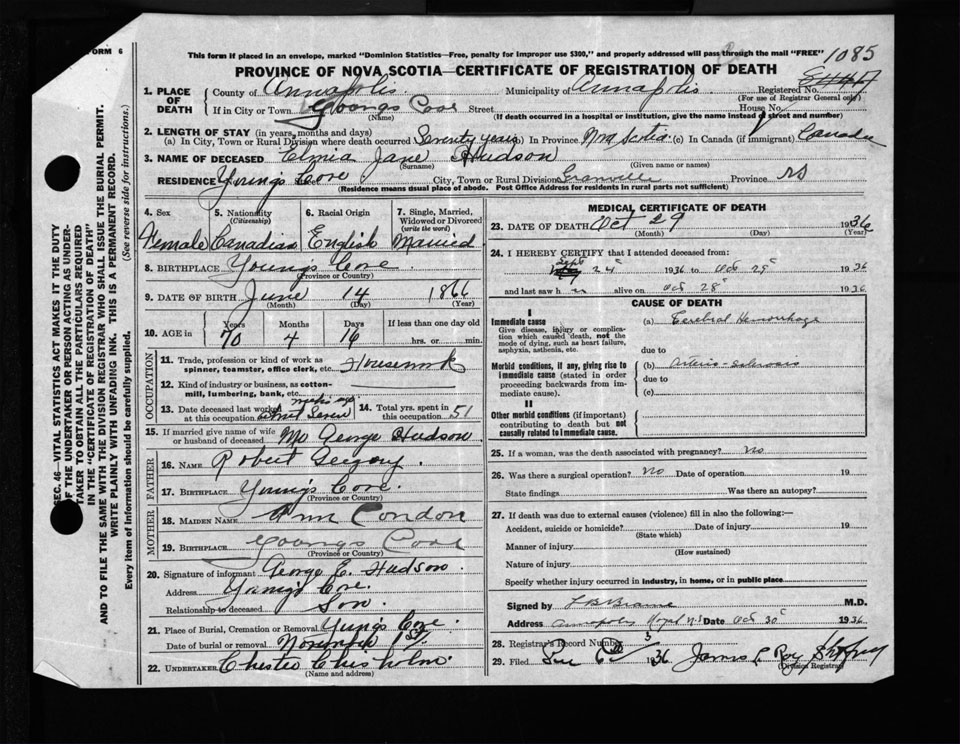 FORM 6
This form if placed in an envelope, marked "Dominion Statistics—Free, penalty for improper use $300," and properly addressed will pass through the mail "FREE"
1085
PROVINCE OF NOVA SCOTIA—CERTIFICATE OF REGISTRATION OF DEATH
1. PLACE OF DEATH
County of Annapolis Municipality of Annapolis Registered No.
(For use of Registrar General only)
If in City or Town Youngs Cove Street House No.
(Name) (If death occurred in a hospital or institution, give the name instead of street and number)
2. LENGTH OF STAY (in years, months and days)
(a) In City, Town or Rural Division where death occurred Seventy years (b) In Province Nova Scotia (c) In Canada (if immigrant) Canada
3. NAME OF DECEASED Elmia Jane Hudson
(Surname) (Given name or names)
RESIDENCE Young's Cove Street City, Town or Rural Division Granville Province NS
(Residence means usual place of abode. Post Office Address for residents in rural parts not sufficient)
4. Sex 5. Nationality (Citizenship) 6. Racial Origin 7. Single, Married, Widowed or Divorced (write the word)
Female Canadian English Married
8. BIRTHPLACE Young's Cove
(Province or Country)
9. DATE OF BIRTH June 14 1866
(Month) (Day) (Year)
10. AGE in Years Months Days If less than one day old
70 4 16 hrs. or min.
OCCUPATION
11. Trade, profession or kind of work as spinner, teamster, office clerk, etc. Housework
12. Kind of industry or business, as cotton-mill, lumbering, bank, etc.
13. Date deceased last worked at this occupation
14. Total yrs. spent in this occupation 51
15. If married give name of wife or husband of deceased Mr George Hudson
FATHER
16. NAME Robert
17. BIRTHPLACE Young's Cove
(Province or Country)
MOTHER
18. MAIDEN NAME Ann Condon
19. BIRTHPLACE Youngs Cove
(Province or Country)
20. Signature of informant George E. Hudson
Address Young's Cove
Relationship to deceased Son
21. Place of Burial, Cremation or Removal Yung's Cove
Date of burial or removal November 1st
22. UNDERTAKER Chester Chisholm
(Name and address)
MEDICAL CERTIFICATE OF DEATH
23. DATE OF DEATH Oct 29 1936
(Month) (Day) (Year)
24. I HEREBY CERTIFY that I attended deceased from:
Sept 24 1936 to Oct 29 1936
and last saw h alive on Oct 28 1936
CAUSE OF DEATH
I
Immediate cause
Give disease, injury or complication which caused death, not the mode of dying, such as heart failure, asphyxia, asthenia, etc.
(a) Cerebral Hemorrhage
due to
Morbid conditions, if any, giving rise to immediate cause (stated in order proceeding backwards from immediate cause).
(b) Arterio-sclerosis
due to
(c)
II
Other morbid conditions (if important) contributing to death but not causally related to immediate cause.
25. If a woman, was the death associated with pregnancy? no
26. Was there a surgical operation? no Date of operation 19
State findings Was there an autopsy?
27. If death was due to external causes (violence) fill in also the following:—
Accident, suicide or homicide? Date of injury 19
(State which)
Manner of injury
(How sustained)
Nature of injury
Specify whether injury occurred in industry, in home, or in public place
Signed by M.D.
Address Annapolis Royal N.S. Date Oct 30 1936
28. Registrar's Record Number 3
29. Filed 1936 James Roy
(Division Registrar)
SEC. 46—VITAL STATISTICS ACT MAKES IT THE DUTY
OF THE UNDERTAKER OR PERSON ACTING AS UNDER-
TAKER TO OBTAIN ALL THE PARTICULARS REQUIRED
IN THE "CERTIFICATE OF REGISTRATION OF DEATH"
AND TO FILE THE SAME WITH THE DIVISION REGISTRAR WHO SHALL ISSUE THE BURIAL PERMIT.
WRITE PLAINLY WITH UNFADING INK. THIS IS A PERMANENT RECORD.
Every item of information should be carefully supplied. (See reverse side for instructions.)